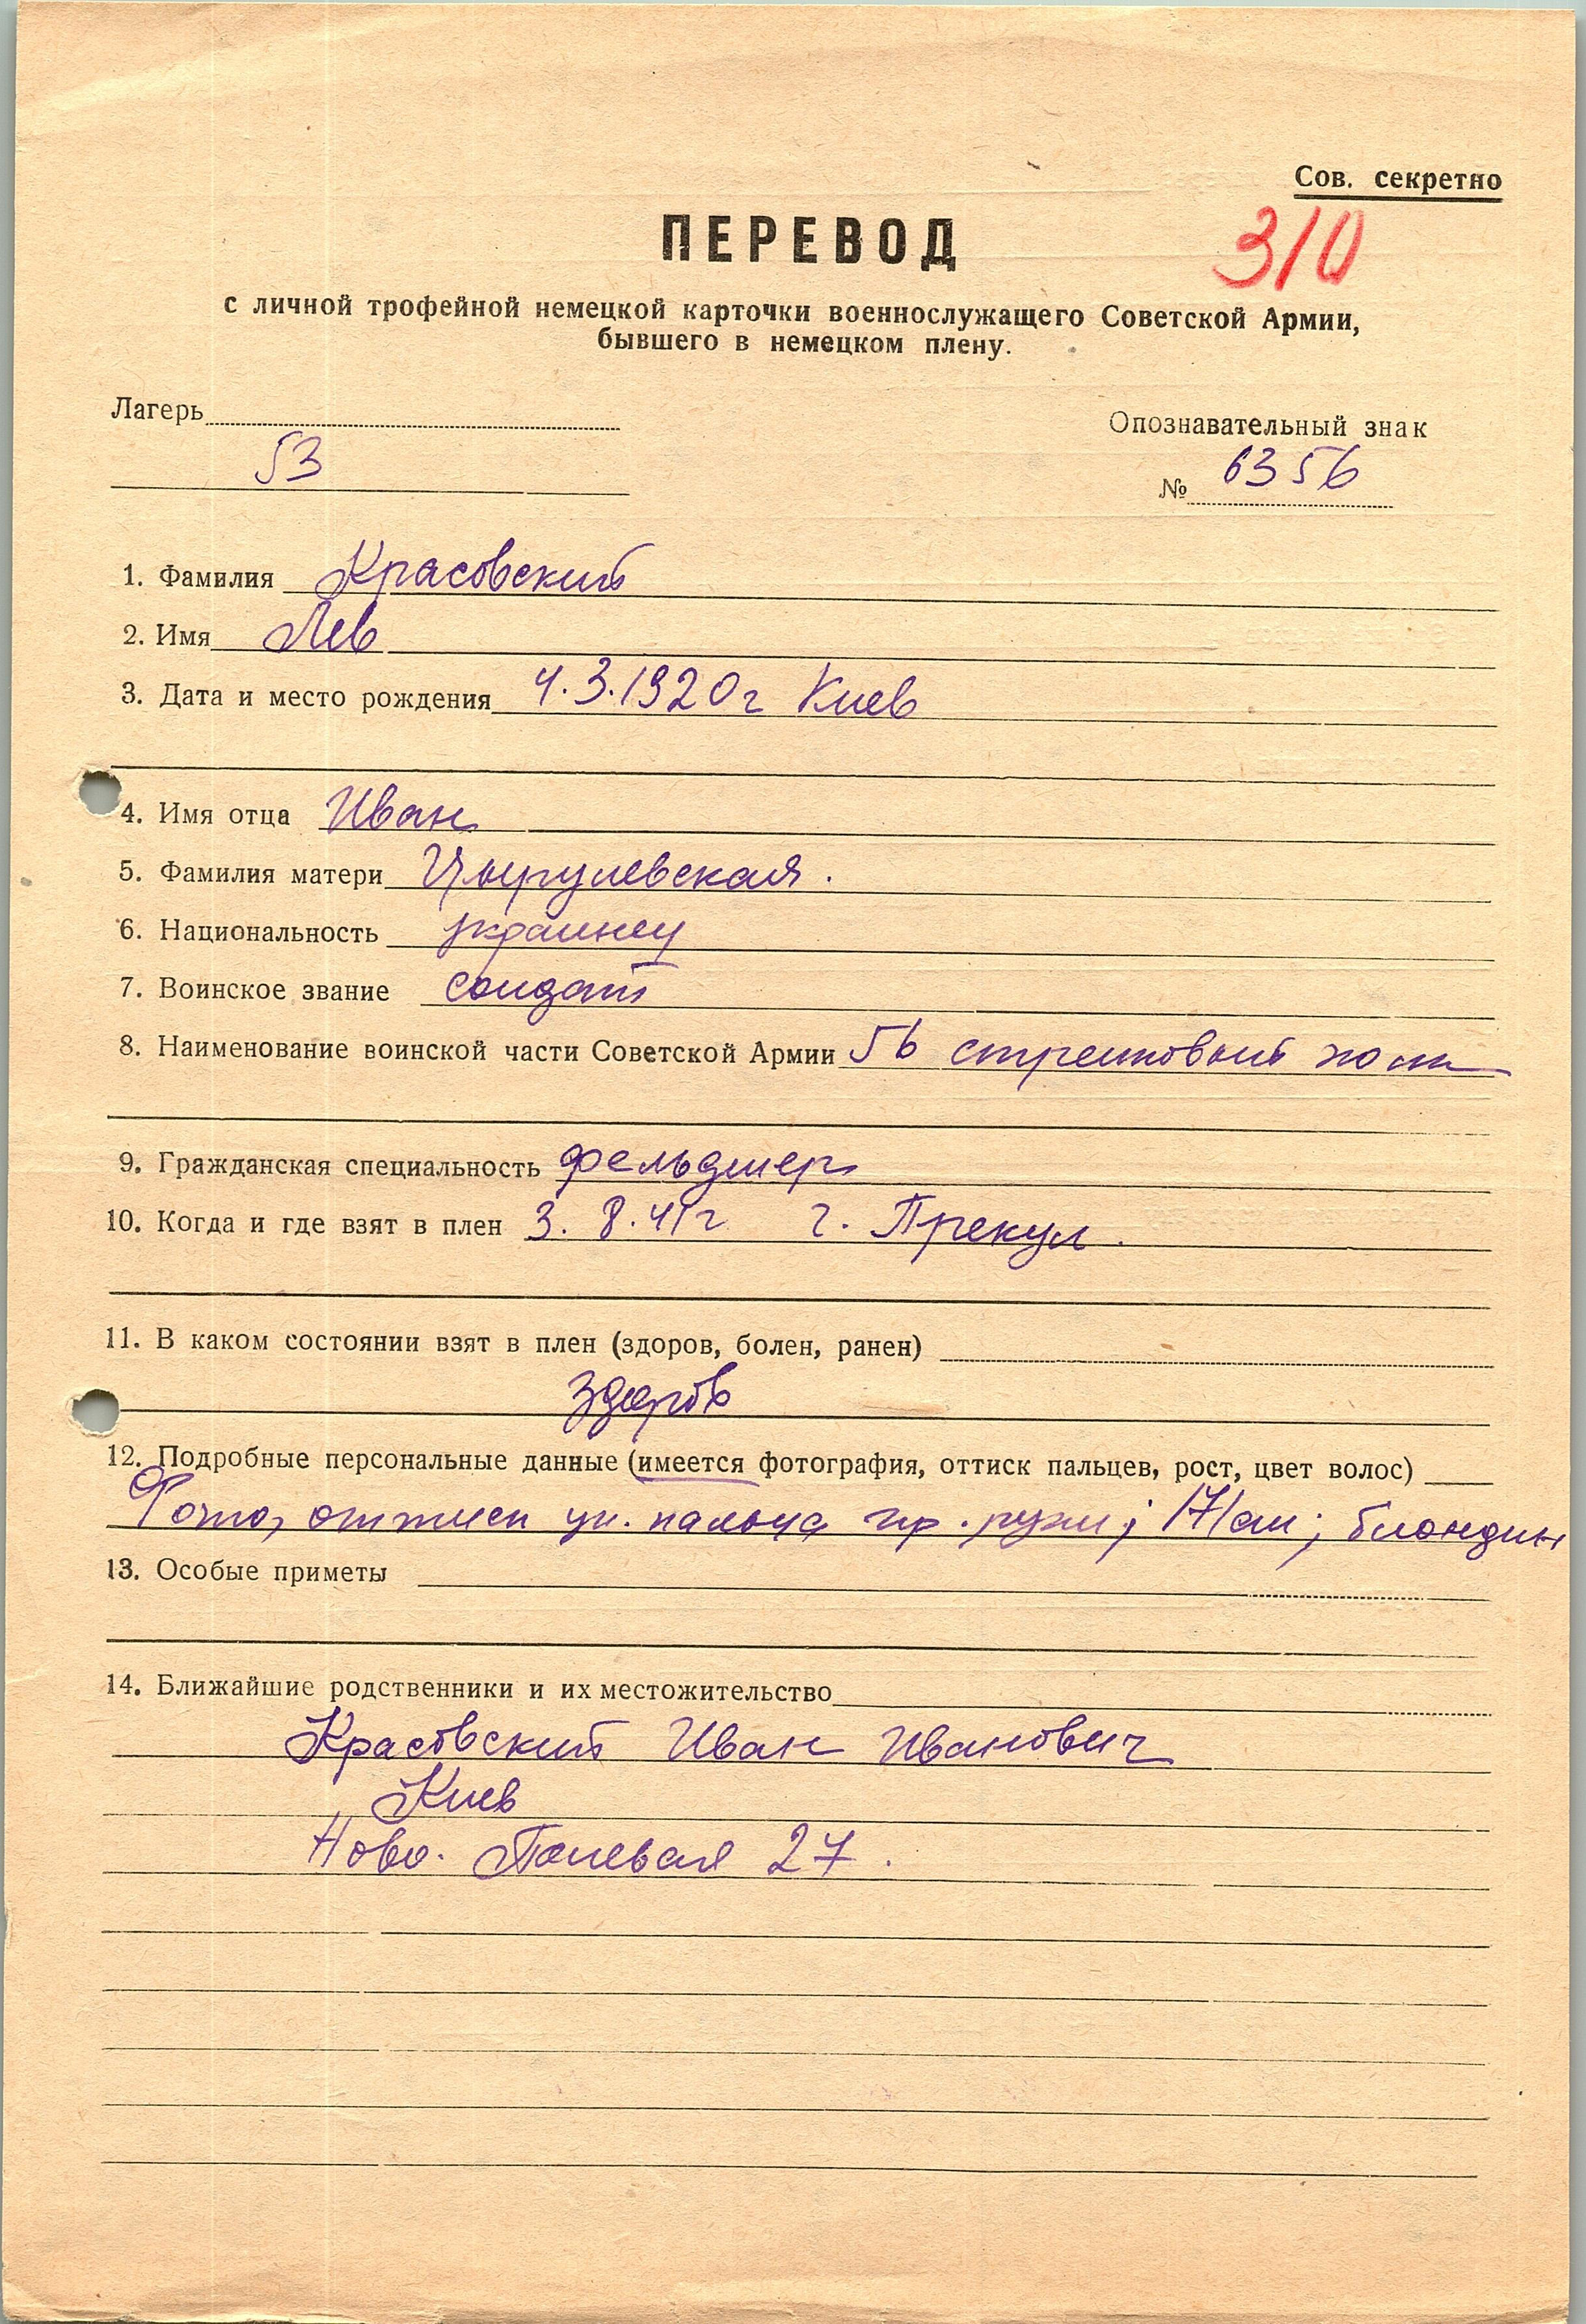 Сов. секретно
310
ПЕРЕВОД
с личной трофейной немецкой карточки военнослужащего Советской Армии,
бывшего в немецком плену.
Лагерь
Опознавательный знак
53
№ 6356
1. Фамилия Красовский
2. Имя Лев
3. Дата и место рождения 4.3.1920г Киев
4. Имя отца Иван
5. Фамилия матери
6. Национальность украинец
7. Воинское звание солдат
8. Наименование воинской части Советской Армии 56 стрелковый полк
9. Гражданская специальность фельдшер
10. Когда и где взят в плен 3. 8. 41г г. Прекул.
11. В каком состоянии взят в плен (здоров, болен, ранен)
здоров
12. Подробные персональные данные (имеется фотография, оттиск пальцев, рост, цвет волос)
Фото, оттиск ук. пальца пр. руки; 171см; блондин
13. Особые приметы
14. Ближайшие родственники и их местожительство
Красовский Иван Иванович
Киев
Ново. Полевая 27.